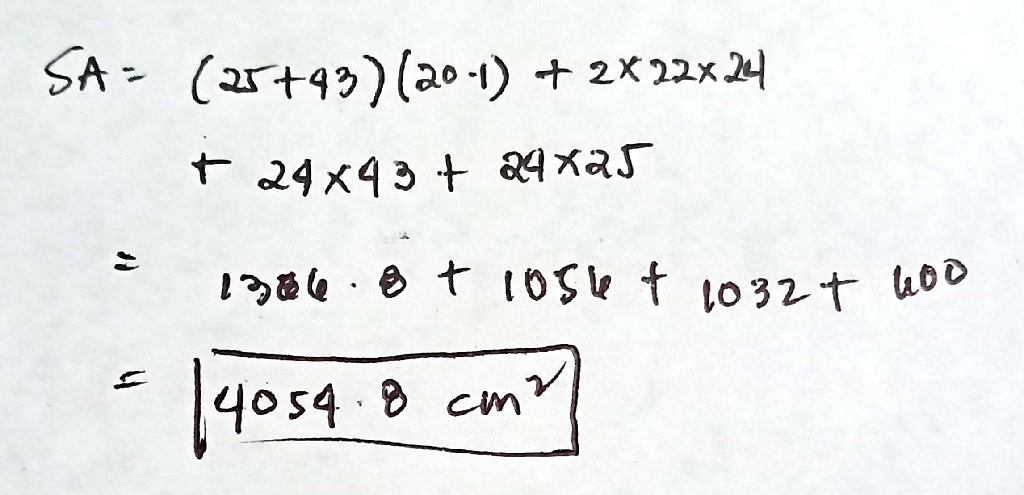 SA = (25+43)(20.1) + 2×22×24
+ 24×43 + 24×25
= 1366.8 + 1056 + 1032 + 600
= 4054.8 cm²